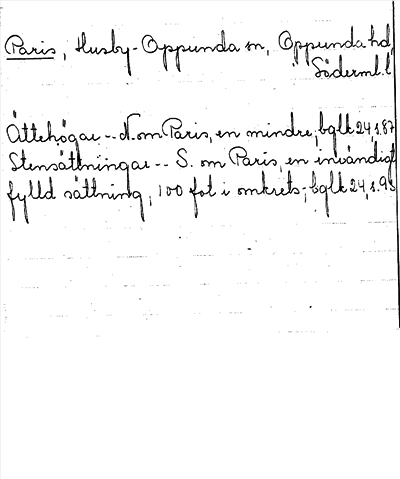 Paris, Husby-Oppunda sn, Oppunda hd,
Söderml. l
Ättehögar -- N. om Paris, en mindre; bglk 24, s. 87
Stensättningar -- S. om Paris, en invändigt
fylld sättning, 100 fot i omkrets; bglk 24, s. 93